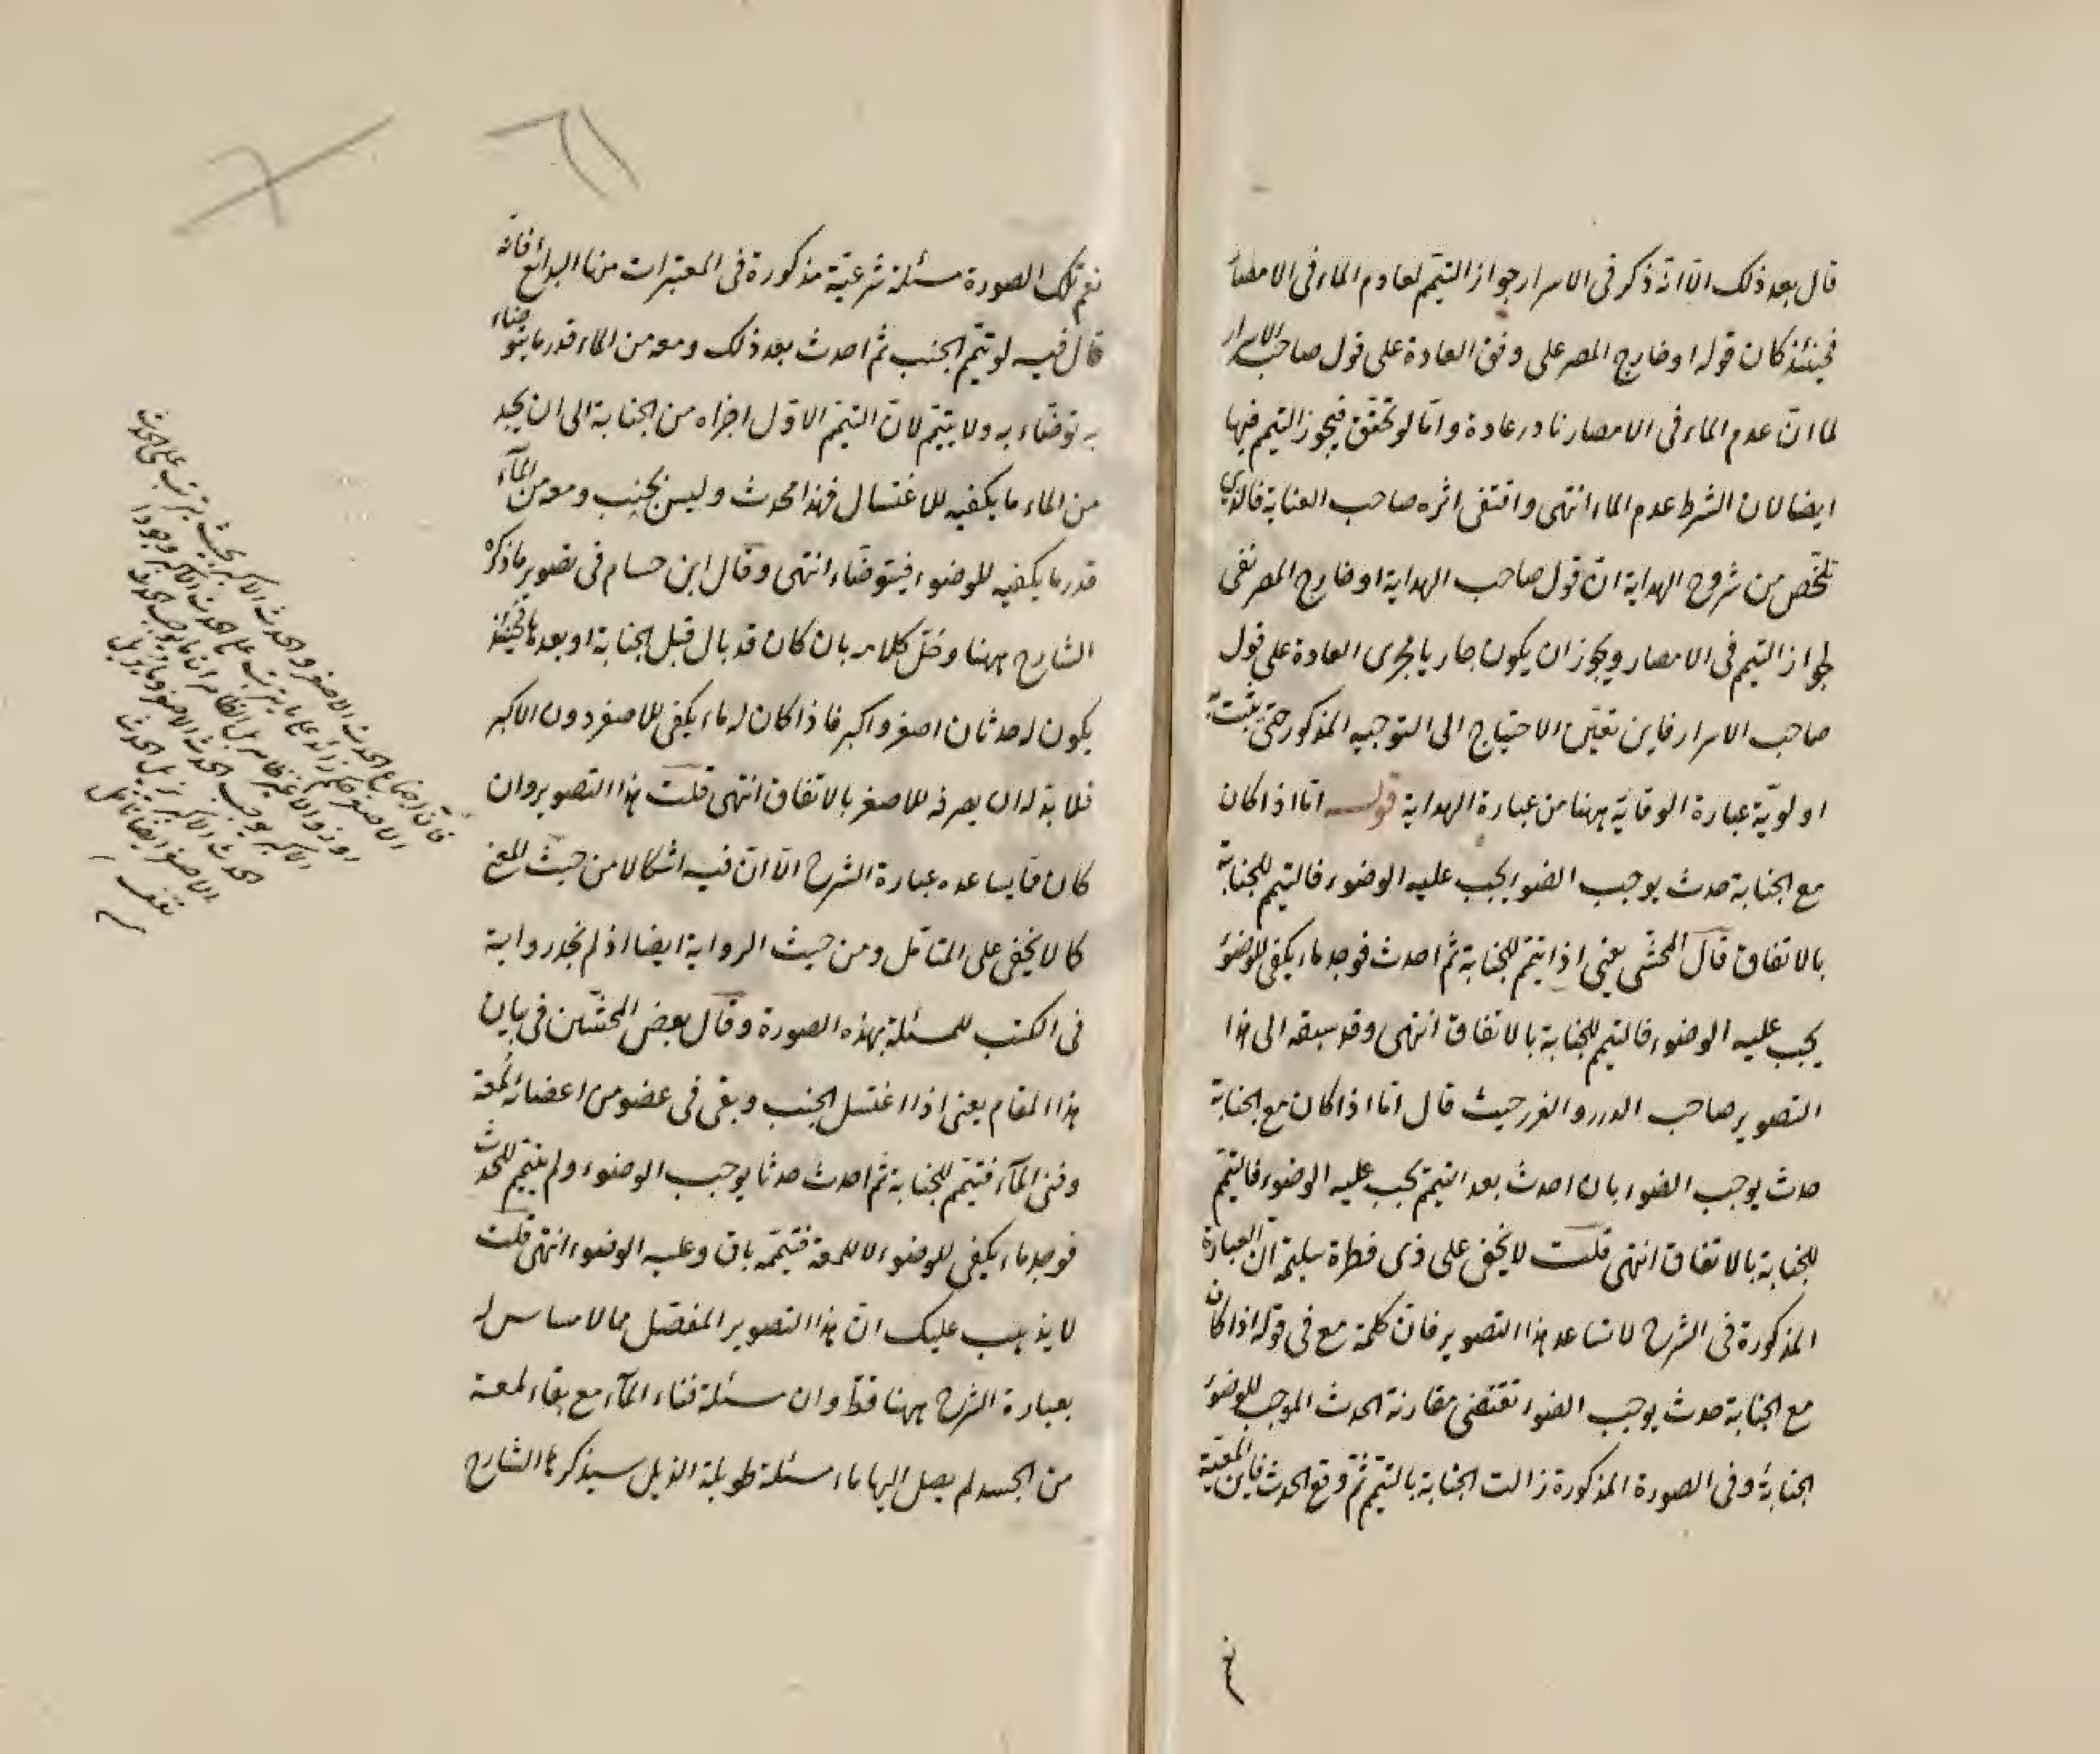 قال بعد ذلك الا انه ذكر فى الاسرار جواز التيمم لعادم الماء فى الامصار
فحينئذ كان قوله او خارج المصر على وفق العادة على قول صاحب الاسرار
لما ان عدم الماء فى الامصار نادر عادة واما لو تحقق فيجوز التيمم فيها
ايضا لان الشرط عدم الماء انتهى واقتفى اثره صاحب العناية فالذى
تلخص من شروح الهداية ان قول صاحب الهداية او خارج المصر نفى
لجواز التيمم فى الامصار ويجوز ان يكون جاريا مجرى العادة على قول
صاحب الاسرار فاين تعين الاحتياج الى التوجيه المذكور حتى يثبت
اولوية عبارة الوقاية ههنا من عبارة الهداية قوله اما اذا كان
مع الجنابة حدث يوجب الضوء يجب عليه الوضوء فالتيمم للجنابة
بالاتفاق قال المحشى يعنى اذا تيمم للجنابة ثم احدث فوجد ماء يكفى للوضوء
يجب عليه الوضوء فالتيمم للجنابة بالاتفاق انتهى وقد سبقه الى هذا
التصوير صاحب الدرر والغرر حيث قال اما اذا كان مع الجنابة
حدث يوجب الضوء بان احدث بعد التيمم يجب عليه الوضوء فالتيمم
للجنابة بالاتفاق انتهى قلت لا يخفى على ذى فطرة سليمة ان العبارة
المذكورة فى الشرح لا تساعد هذا التصوير فان كلمة مع فى قوله اذا كان
مع الجنابة حدث يوجب الضوء تقتضى مقارنة الحدث الموجب للوضوء
الجنابة وفى الصورة المذكورة زالت الجنابة بالتيمم ثم وقع الحدث فاين المعية
نعم
نعم تلك الصورة مسئلة شرعية مذكورة فى المعتبرات منها البدائع فانه
قال فيه لو تيمم الجنب ثم احدث بعد ذلك ومعه من الماء قدر ما يتوضاء
به توضاء به ولا يتيمم لان التيمم الاول اجزاه من الجنابة الى ان يجد
من الماء ما يكفيه للاغتسال فهذا محدث وليس بجنب ومعه من الماء
قدر ما يكفيه للوضوء فيتوضاء انتهى وقال ابن حسام فى تصوير ما ذكره
الشارح ههنا وحل كلامه بان كان قد بال قبل الجنابة او بعدها فحينئذ
يكون له حدثان اصغر واكبر فاذا كان له ماء يكفى للاصغر دون الاكبر
فلا بد له ان يصرفه للاصغر بالاتفاق انتهى قلت هذا التصوير وان
كان مما يساعده عبارة الشرح الا ان فيه اشكالا من حيث المعنى
كما لا يخفى على المتامل ومن حيث الرواية ايضا اذ لم نجد رواية
فى الكتب للمسئلة بهذه الصورة وقال بعض المحشين فى بيان
هذا المقام يعنى اذا اغتسل الجنب وبقى فى عضو من اعضائه لمعة
وفنى الماء فتيمم للجنابة ثم احدث حدثا يوجب الوضوء ولم يتيمم للحدث
فوجد ماء يكفى للوضوء لا للمعة فتيممه باق وعليه الوضوء انتهى قلت
لا يذهب عليك ان هذا التصوير المفصل مما لا مساس له
بعبارة الشرح ههنا قط وان مسئلة فناء الماء مع بقاء لمعة
من الجسد لم يصل اليها ماء مسئلة طويلة الذيل سيذكرها الشارح
فان اجتماع الحدث الاصغر والحدث الاكبر بحيث يترتب على الحدث
الاصغر حكم زائد على ما يترتب على الحدث الاكبر وجودا
الاكبر يوجب الحدث الاصغر
الحدث الاكبر يزيل الحدث
الاصغر ايضا تامل